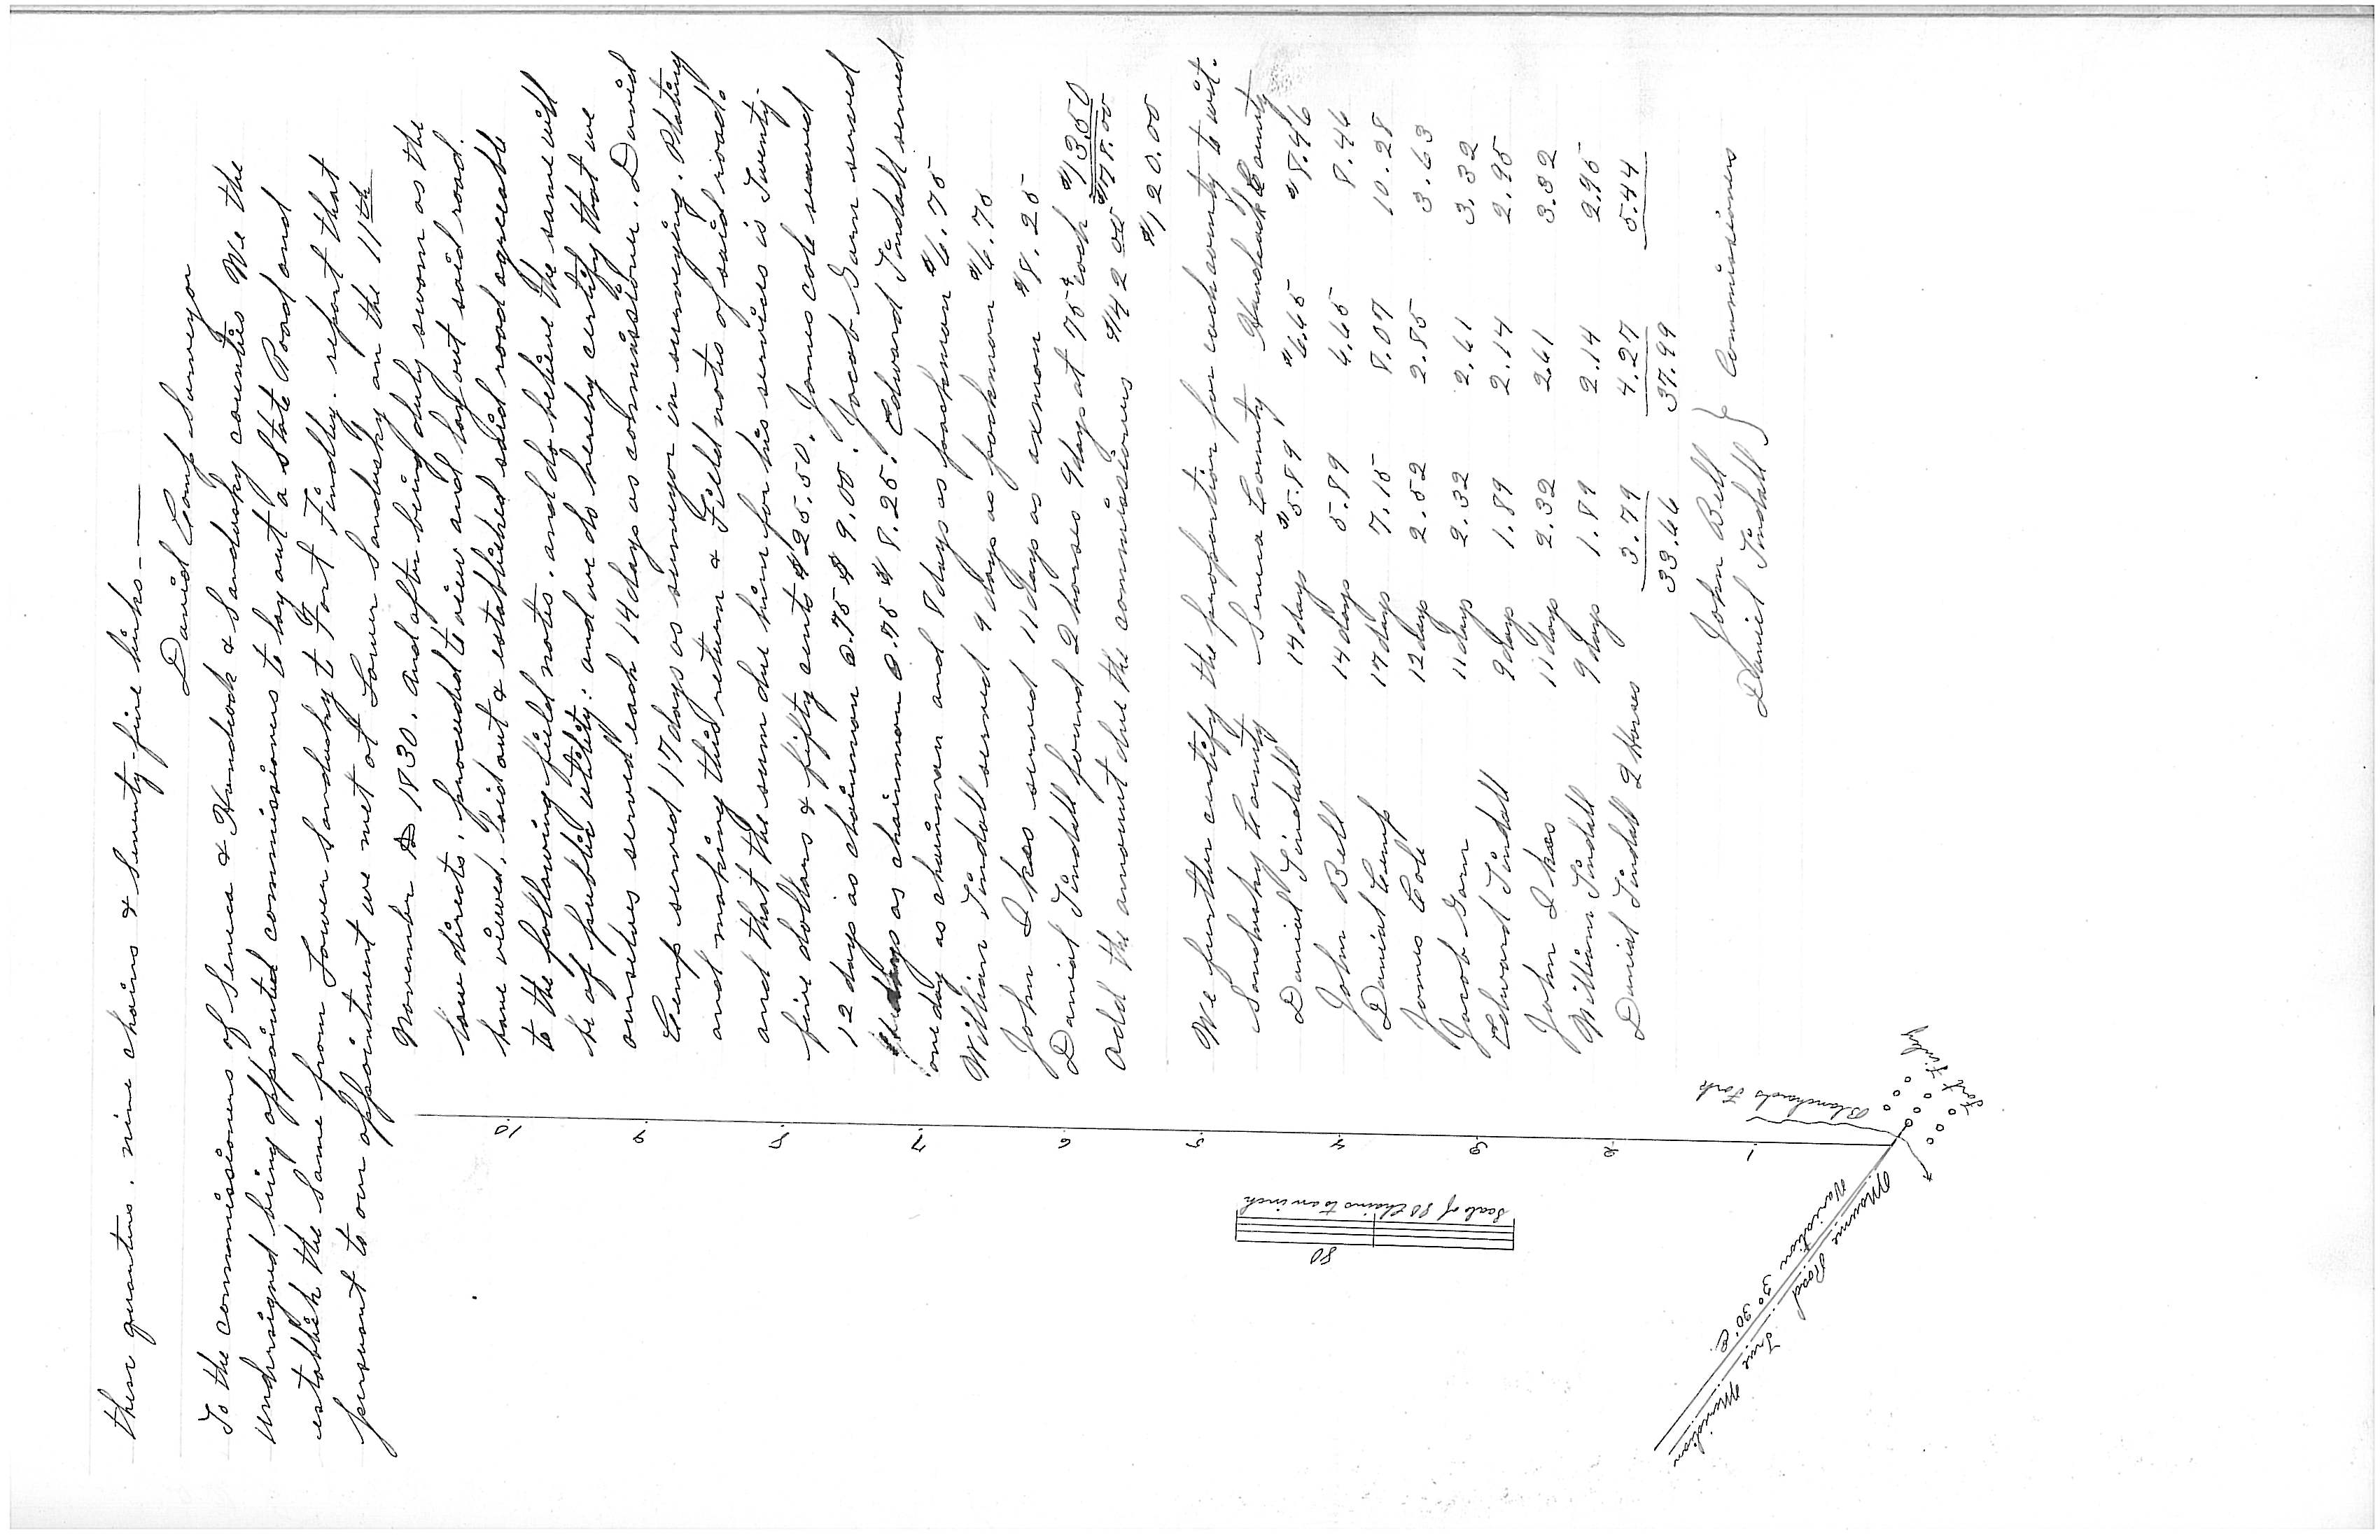 three quarters. nine chains & seventy-five links—
David Camp Surveyor
To the commissioners of Seneca & Handcock & Sandusky counties We the
undersigned being appointed commissioners to lay out a State Road and
establish the same from Lower Sandusky to Fort Findley. report that
persuant to our appointment we met at Lower Sandusky on the 11th
November 1830. and after being duly sworn as the
law directs. proceeded to view and lay out said road.
have viewed, laid out & established said road agreeable
to the following field notes. and do believe the same will
be of public utility: and we do hereby certify that we
ourselves served each 14 days as commissioner. David
Camp served 17 days as surveyor in surveying. Plating
and making this return & Field notes of said road.
and that the sum due him for his services is Twenty-
five dollars & fifty cents $25.50. James Cole served
12 days as chainman @.75 $9.00. Jacob Garn served
days as chainman @.75 $8.25. Edward Tindall served
one day as chainman and 8 days as packman $6.75
William Tindall served 9 days as packman $6.75
John Ikes served 11 days as axman $8.25
Daniel Tindall found 2 horses 9 days at 75¢ each $13.50
$78.00
add the amount due the commissioners $42.00
$120.00
We further certify the proportion for each county to wit.
Sandusky County Seneca County Handcock County
Daniel Tindall 14 days $5.89 $6.65 $8.46
John Bell 14 days 5.89 6.65 8.46
David Camp 17 days 7.15 8.07 10.28
James Cole 12 days 2.52 2.85 3.63
Jacob Garn 11 days 2.32 2.61 3.32
Edward Tindall 9 days 1.89 2.14 2.95
John Ikes 11 days 2.32 2.61 3.32
William Tindall 9 days 1.89 2.14 2.95
Daniel Tindall 2 Horses 3.79 4.27 5.44
33.66 37.99
John Bell
Daniel Tindall } Commissioners
10
9
8
7
6
5
4
3
2
1
Blanchards Fork
Fort Findley
80
Scale of 80 Chains to an inch
Maumee Road
True Meridian
Variation 3° 30' E.